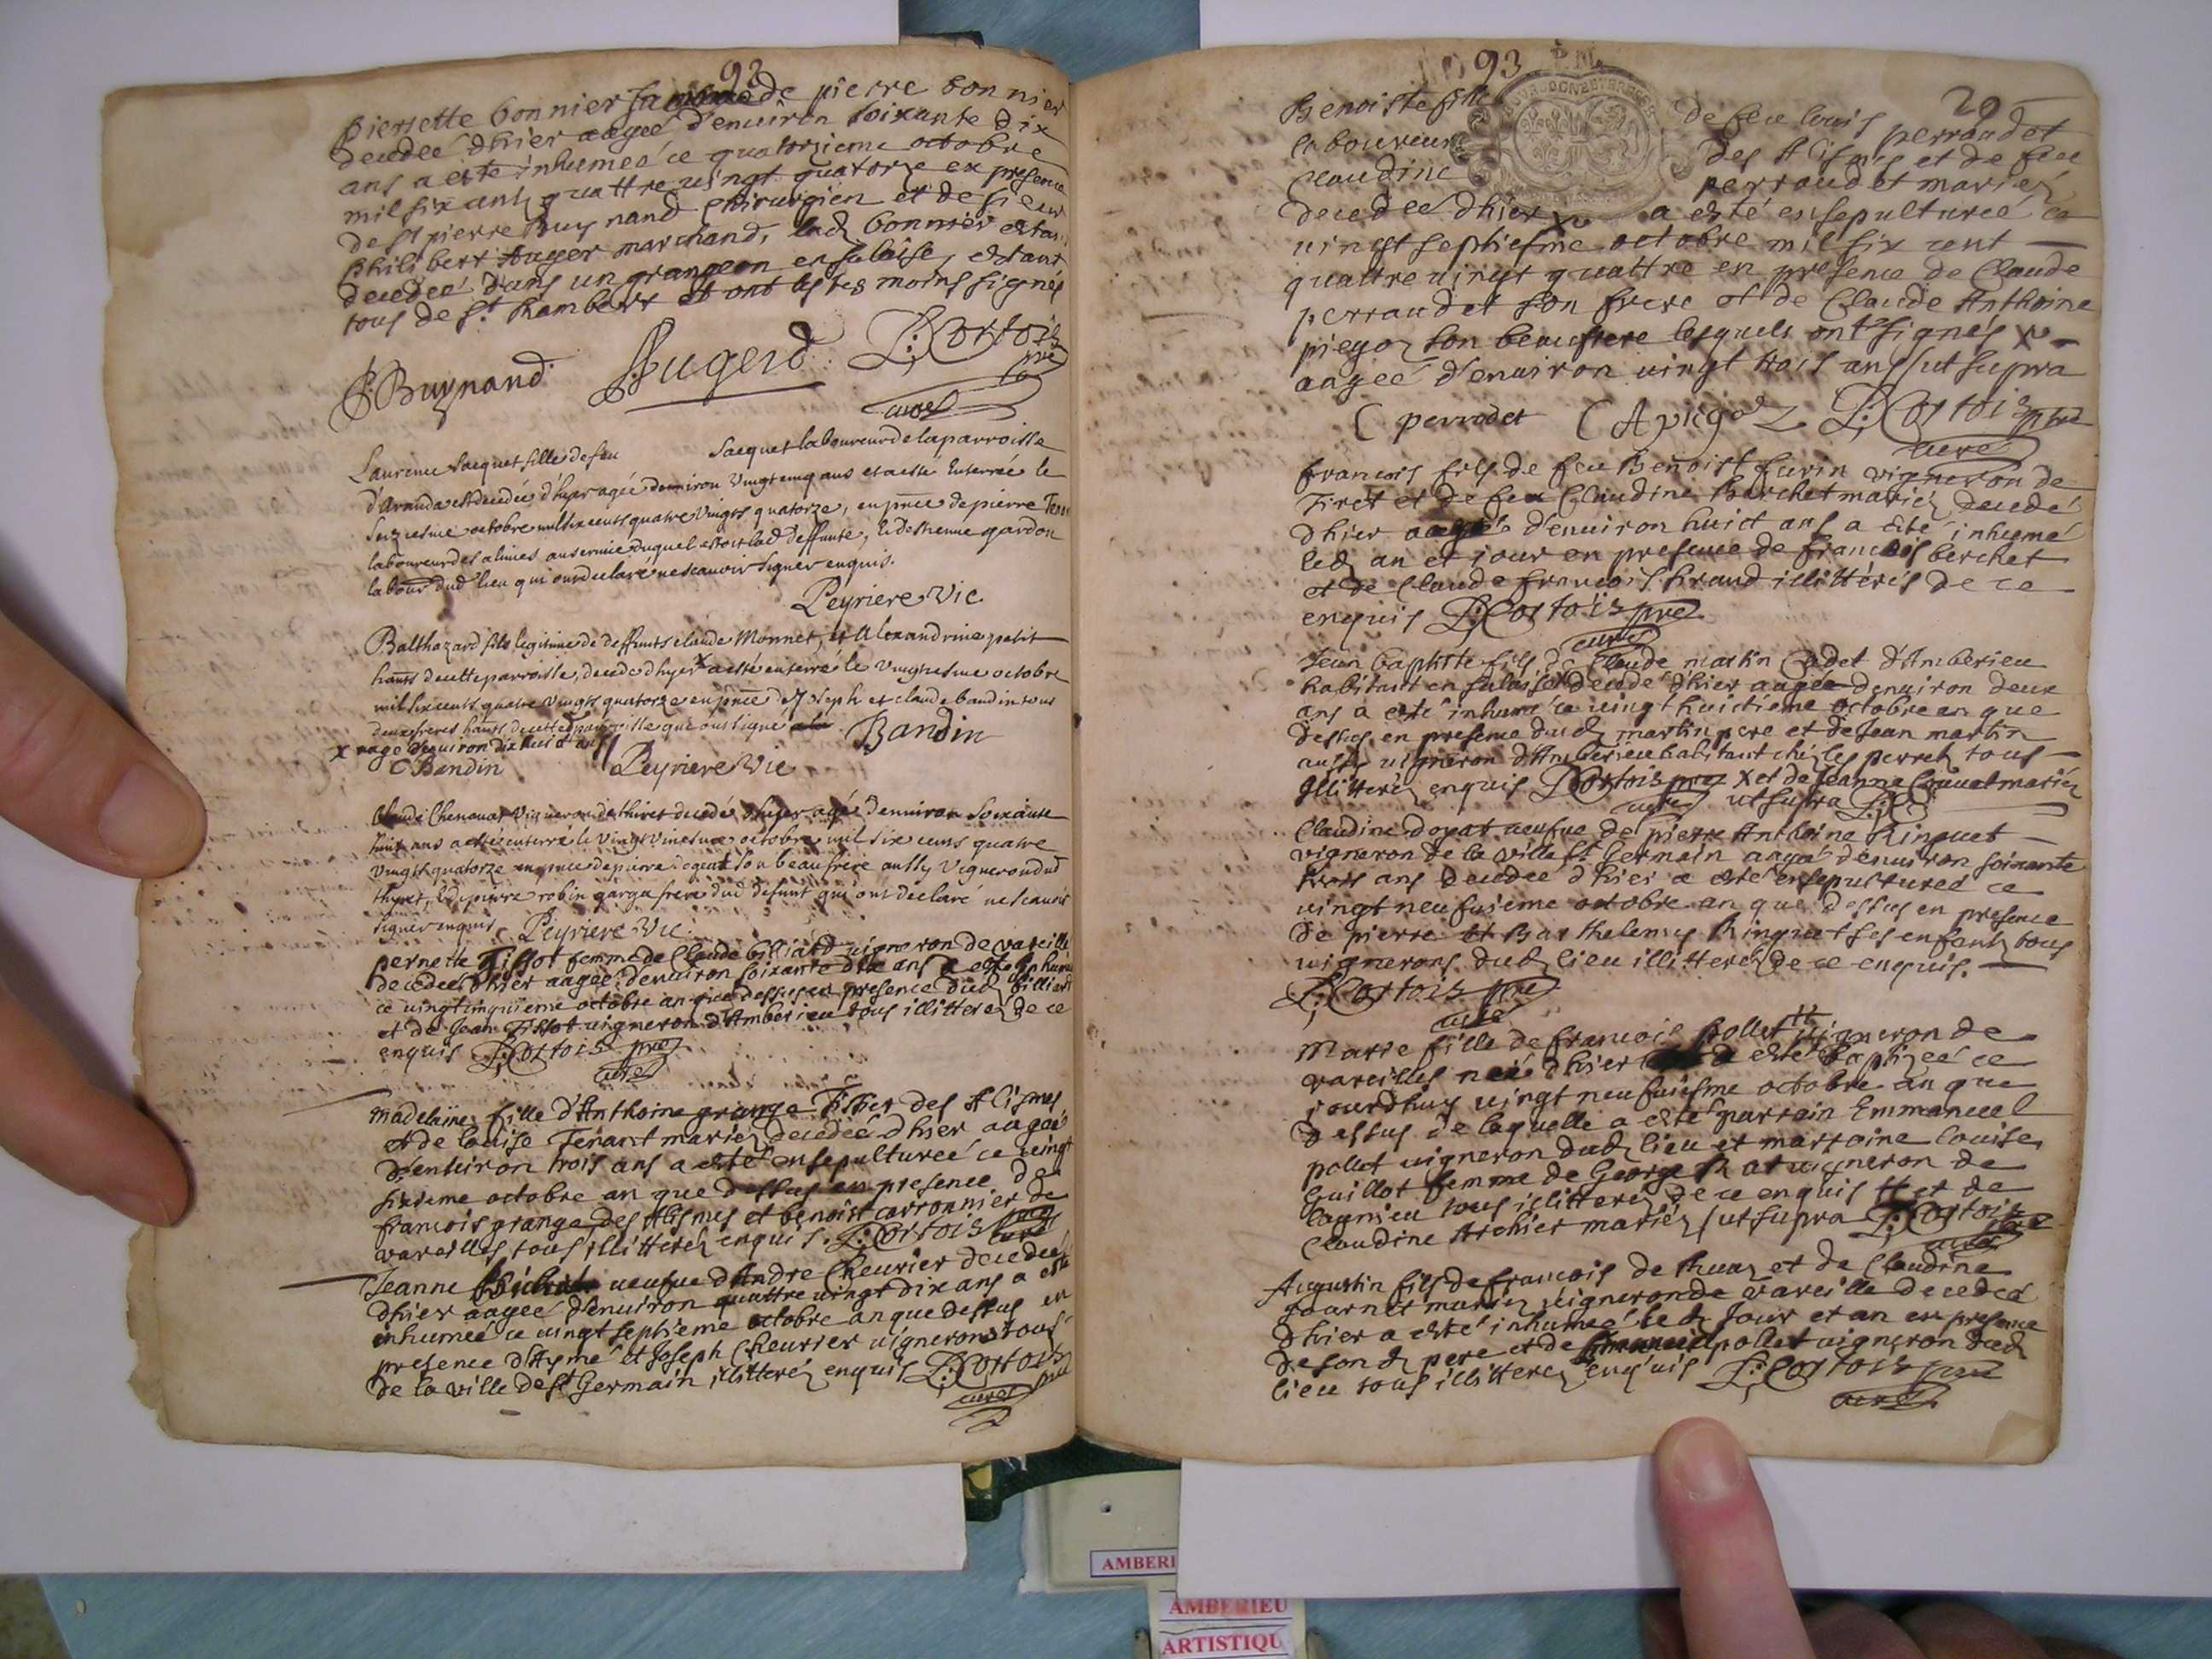 93
pierrette bonnier femme de pierre bonnier
decedeé dhier aageé d'enuiron soixante dix
ans a esté inhumeé ce quatorzieme octobre
mil six cents quattre uingt quatorze ex presence
de Sr pierre Buynand chirurgien et de sieur
philibert Auger marchand, lad bonnier estant
decedeé dans un grangeon en salaise, estant
tous de St Rambert et ont les tesmoins signés
P. Buynand
Augerd
P: Cortois pre
curé
Laurence Jacquet fille de feu Jacquet laboureur de la parroisse
d'Aranda est decedée d'hyer agée denuiron Vingt cinq ans et a esté Enterrée le
Seiziesme octobre mil six cents quatre Vingts quatorze, en pnce de pierre
laboureur des alimes au seruice duquel estoit lad deffunte, & d'estienne gardon
labour dud lieu qui ont declaré ne scauoir signer enquis.
Peyriere Vic
Balthazard fils legitime de deffunts claude Monnet, et Alexandrine petit
hants de cette parroisse, decedé d'hyer x a esté enterré le Vingtiesme octobre
mil six cents quatre Vingts quatorze en pnce de Joseph et claude baudin tous
deux freres hants de cette parroisse que ont signé
x aagé denuiron dix huict ans
Baudin
C Baudin
Peyriere Vic
Claude Chenauat Vigneron de thiret decedé d'hyer agé d'enuiron Soixante
huit ans a esté enterré le Vingt Vniesme octobre mil six cents quatre
Vingts quatorze en pnce de pierre degeat son beaufrere aussy Vigneron dud
thyret, & de pierre robin garga frere dud defunt qui ont declaré ne scauoir
signer enquis Peyriere Vic.
pernette Tissot femme de Claude billiard uigneron de vareille
decedeé dhier aageé denuiron soixante dix ans a esté inhumé
ce uingt cinquieme octobre an que dessus en presence dud billiard
et de Jean Tissot uigneron d'Amberieu tous illitterez de ce
enquis P: Cortois pre
curé
Madelaine fille d'Anthoine grange Tissier des Alismes
et de louise Tenant mariez decedeé dhier aageé
d'enuiron trois ans a esté ensepultureé ce uingt
sixieme octobre an que dessus en presence de
francois grange des Alismes et benoist carronnier de
vareilles tous illitterez enquis. P: Cortois pre
curé
Jeanne ueufue d'Andre Cheurier decedeé
dhier aageé d'enuiron quattre uingt dix ans a esté
inhumeé ce uingt septieme octobre an que dessus en
presence d'Aymé et Joseph Cheurier uignerons tous
de la uille de St Germain illitterez enquis P: Cortois pre
curé
1693
29
Benoiste fille de feu louis perraudet
laboureur des Alismes et de feue
Claudine perraudet mariez
decedeé dhier x a esté ensepultureé ce
uingt septiesme octobre mil six cent
quattre uingt quattre en presence de Claude
perraudet son frere et de Claude Anthoine
piegoz son beaufrere lesquels ont signés x
aageé d'enuiron uingt trois ans / ut supra
C perrodet C A piegoz P: Cortois pre
curé
francois fils de feu Benoist furin vigneron de
Tiret et de feu Claudine Barchet mariez decedé
dhier aagé d'enuiron huict ans a esté inhumé
led an et jour en presence de francois berchet
et de Claude francois brand illitterés de ce
enquis P: Cortois pre
curé
Jean baptiste fils de Claude martin Cadet d'Amberieu
habitant en salaise x decedé dhier aagée denuiron deux
ans a esté inhumé ce uingt huictieme octobre an que
dessus en presence dud martin pere et de Jean martin
aussy uigneron d'Amberieu habitant chez les perrez tous
illitterez enquis P: Cortois pre x et de Jeanne Couuat mariez
curé ut supra P: C
Claudine doyat ueufue de pierre Anthoine Ringuet
vigneron de la uille St Germain aageé denuiron soixante
trois ans decedeé dhier a esté ensepultureé ce
uingt neufuieme octobre an que dessus en presence
de pierre et Barthelemy Ringuet ses enfantz tous
uignerons dud lieu illitterez de ce enquis.
P: Cortois pre
curé
Marie fille de francois pollet # uigneron de
vareilles neé dhier a esté baptizeé ce
jourdhuy uingt neufuiesme octobre an que
dessus de laquelle a esté parrain Emmanuel
pollet uigneron dud lieu et marraine louise
Guillot femme de George uigneron de
lagnieu tous illitterez de ce enquis # et de
Claudine Archier mariez / ut supra P: Cortois pre
curé
Augustin fils de francois de thuaz et de Claudine
fournet mariez uigneron de vareille decedé
dhier a esté inhumeé led Jour et an en presence
de son d pere et de Emanuel pollet uigneron dud
lieu tous illitterez enquis P: Cortois pre
curé
AMBERI
AMBERIEU
ARTISTIQU